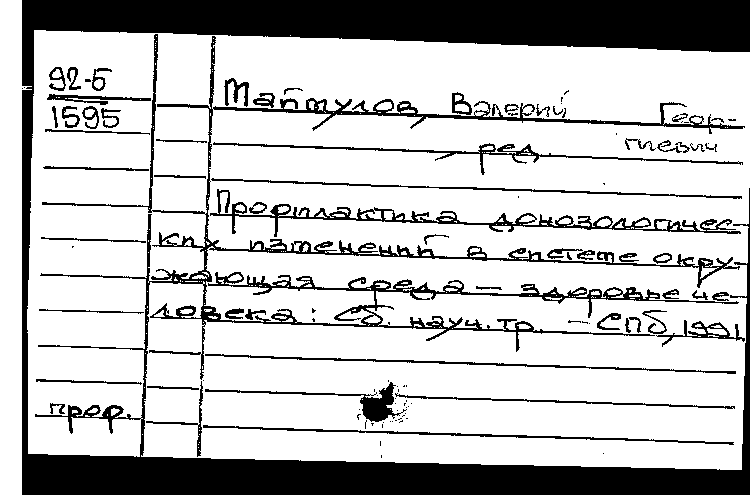 92-5
1595
Маймулов, Валерий Геор-
гиевич
, ред.
Профилактика донозологичес-
ких изменений в системе окру-
жающая среда — здоровье че-
ловека: Сб. науч. тр. - СПб, 1991.
проф.